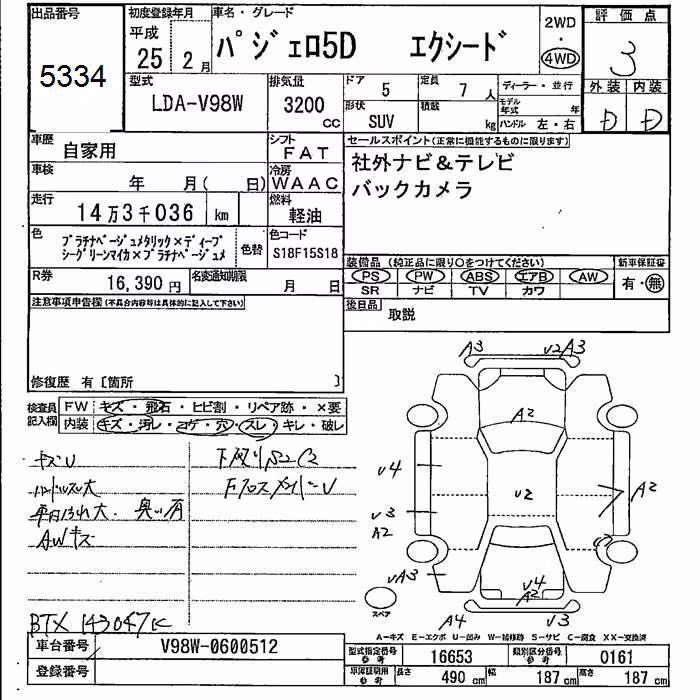 出品番号
5334
初度登録年月
平成
25 2月
車名・グレード
パジェロ5D エクシード
2WD
・
4WD
評価点
3
型式
LDA-V98W
排気量
3200
CC
ドア 5
定員 7 人
形状 SUV
積載 kg
ディーラー・並行
モデル年式 年
ハンドル 左・右
外装 内装
D D
車歴
自家用
シフト
FAT
車検
年 月( 日)
冷房
WAAC
走行
14万3千036 km
燃料
軽油
色
プラチナベージュメタリック×ディープ
シーグリーンマイカ×プラチナベージュメ
色替
色コード
S18F15S18
R券
16,390 円
名変通知期限
月 日
セールスポイント(正常に機能するものに限ります)
社外ナビ&テレビ
バックカメラ
装備品 (純正品に限り○をつけてください)
PS PW ABS エアB AW
SR ナビ TV カワ
新車保証書
有・無
後日品
取説
注意事項申告欄(不具合内容等は具体的に記入して下さい)
修復歴 有 [箇所 ]
検査員
記入欄
FW キズ・飛石・ヒビ割・リペア跡・×要
内装 キズ・汚レ・コゲ・穴・スレ・キレ・破レ
キズU
ハンドルスレ大
車内汚れ大、臭い有
AWキズ
下廻りS2C2
下クロスメンバーU
BTX 143047K
A3 U2A3
A2
U4
U2
A2
U3
A2
UA3
U4
A2
A4 U3
スペア
A−キズ E−エクボ U−凹み W−補修跡 S−サビ C−腐食 XX−交換済
車台番号
V98W-0600512
登録番号
型式指定番号
参考
16653
類別区分番号
参考
0161
車庫証明用
参考
長さ 490 cm
幅 187 cm
高さ 187 cm